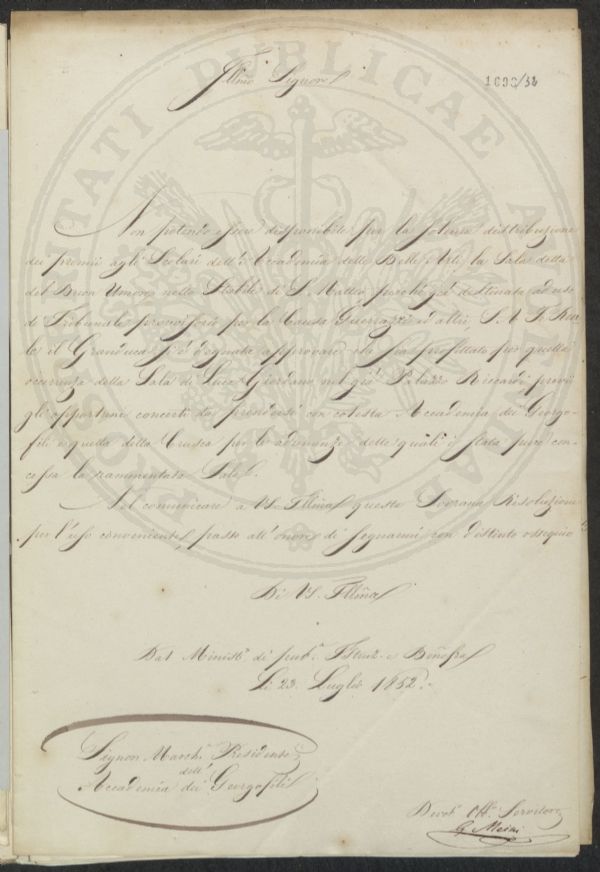 Illmo Signore
1698/32
Non potendo essere disponibile per la solenne distribuzione
dei premii agli Scolari dell'Accademia delle Belle Arti, la Sala detta
del Buon Umore nello Stabile di S. Matteo perchè già destinata ad uso
di Tribunale provvisorio per la Causa Guerrazzi ed altri, S. A. I. Rea-
le il Granduca si è degnata approvare che sia profittato per quella
occorrenza della Sala di Luca Giordano nel già Palazzo Riccardi previi
gli opportuni concerti da prendersi con cotesta Accademia dei Georgo-
fili e quella della Crusca per le adunanze delle quali è stata pure con-
cessa la rammentata Sala.
Nel comunicare a VS. Illma questa Sovrana Risoluzione
per l'uso conveniente, passo all'onore di segnarmi con distinto ossequio
Di VS. Illma
Dal Minist. di pub. Istruz. e Benefza
Li 23. Luglio 1852.
Signor March. Presidente
dell'
Accademia dei Georgofili
Devot. Obb. Servitore